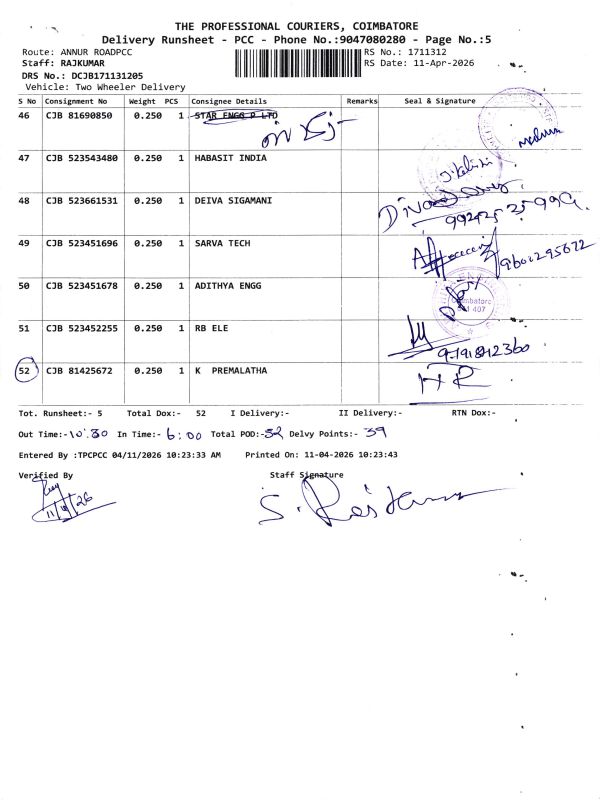 THE PROFESSIONAL COURIERS, COIMBATORE
Delivery Runsheet - PCC - Phone No.:9047080280 - Page No.:5
Route: ANNUR ROADPCC RS No.: 1711312
Staff: RAJKUMAR RS Date: 11-Apr-2026
DRS No.: DCJB171131205
Vehicle: Two Wheeler Delivery
S No Consignment No Weight PCS Consignee Details Remarks Seal & Signature
46 CJB 81690850 0.250 1 STAR ENGG P LTD
47 CJB 523543480 0.250 1 HABASIT INDIA
48 CJB 523661531 0.250 1 DEIVA SIGAMANI
49 CJB 523451696 0.250 1 SARVA TECH
9601295672
50 CJB 523451678 0.250 1 ADITHYA ENGG
Coimbatore
51 CJB 523452255 0.250 1 RB ELE
52 CJB 81425672 0.250 1 K PREMALATHA
Tot. Runsheet:- 5 Total Dox:- 52 I Delivery:- II Delivery:- RTN Dox:-
Out Time:- 10:30 In Time:- 6:00 Total POD:- 52 Delvy Points:- 39
Entered By :TPCPCC 04/11/2026 10:23:33 AM Printed On: 11-04-2026 10:23:43
Verified By Staff Signature
11/4/26